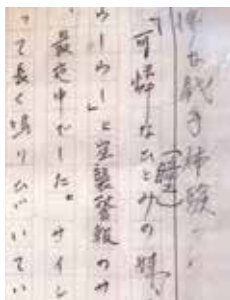 戦争体験
「可憐なひとみの
ウーウー」と空襲警報のサ
最定中でした。サイレ
って長く鳴りひびいてい